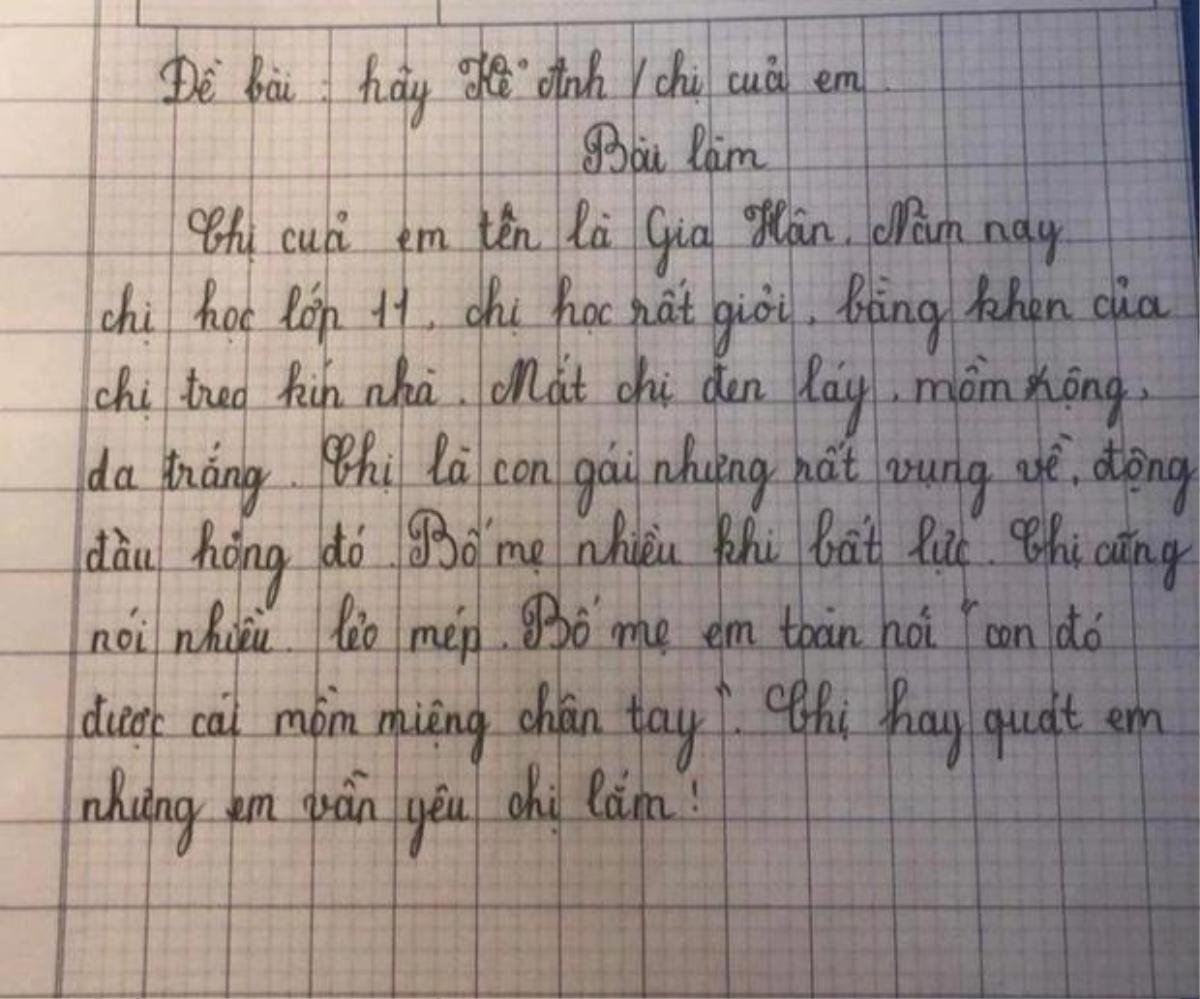 Đề bài : hãy Kể Anh / chị cuả em.
Bài làm
Chị cuả em tên là Gia Hân. Năm nay
chị học lớp 11, chị học rất giỏi, bằng khen của
chị treo kín nhà. Mắt chị đen láy, mồm rộng,
da trắng. Chị là con gái nhưng rất vụng về, động
đâu hỏng đó. Bố mẹ nhiều khi bất lực. Chị cũng
nói nhiều. lẻo mép. Bố mẹ em toàn nói "con đó
được cái mồm miệng chân tay". Chị hay quát em
nhưng em vẫn yêu chị lắm!